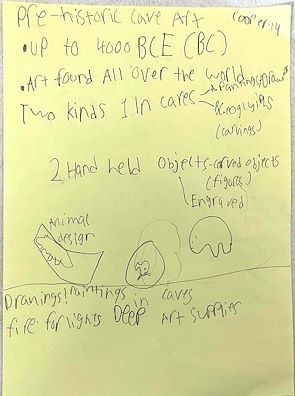 Pre-historic cave Art
cooper-14
•UP to 4000 BCE (BC)
•Art found All over the world
Two kinds 1. In caves
(carvings)
2. Hand held Objects-carved objects
(figures)
Engraved
Animal
design
Drawings! Paintings in caves
fire for lights Deep Art Supplies